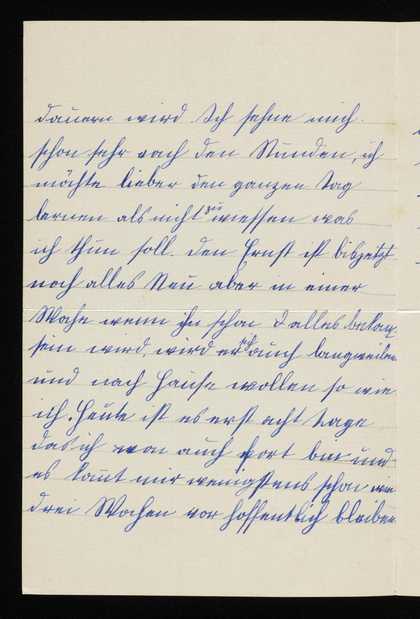 dauern wird Ich sehne mich
schon sehr nach den Stunden, ich
möchte lieber den ganzen Tag
lernen als nicht zu wiessen was
ich thun soll. den Ernst ist bisjetzt
noch alles Neu aber in einer
Woche wenn ihn schon alles bekan
sein wird, wird er sich auch langweilen
und nach Hause wollen so wie
ich. Heute ist es erst acht Tage
das ich von auch fort bin und
es komt mir wenigstens schon wie
drei Wochen vor hoffentlich bleiben